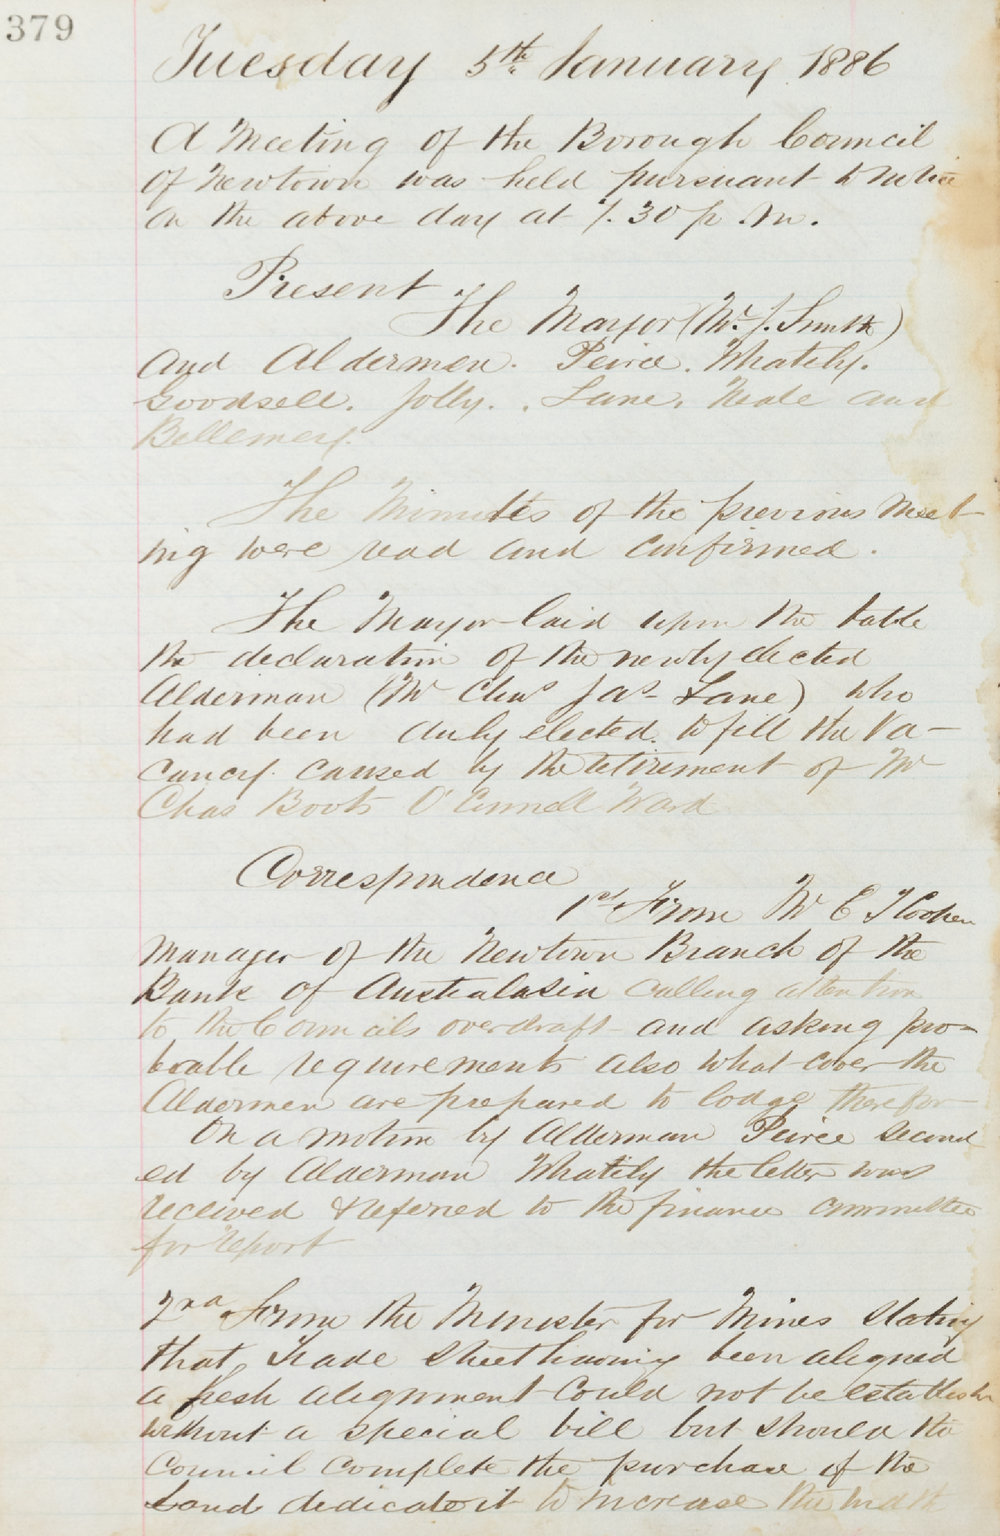 379
Tuesday 5th January 1886
A Meeting of the Borough Council
of Newtown was held pursuant to notice
on the above day at 7.30 p.m.
Present
The Mayor (Mr. J. Smith)
and Aldermen. Peirce. Whately.
Goodsell. Jolly. . Lane. Neale and
Bellemey.
The Minutes of the previous Meet-
ing were read and confirmed.
The Mayor laid upon the table
the declaration of the newly elected
Alderman (Mr Chas Jas Lane) who
had been duly elected. to fill the Va-
cancy. caused by the retirement of Mr
Chas Boots O'Connell Ward
Correspondence
1st From Mr C T Cooken
Manager of the Newtown Branch of the
Bank of Australasia calling attention
to the Councils overdraft and asking pro-
bable requirements also what cover the
Aldermen are prepared to lodge therefor
On a motion by Alderman Peirce second
ed by Alderman Whately the letter was
received & referred to the finance committee
for report
2nd From the Minister for Mines stating
that Trade Street having been aligned
a fresh alignment could not be establish
without a special bill but should the
Council complete the purchase of the
Land dedicate it to increase the width